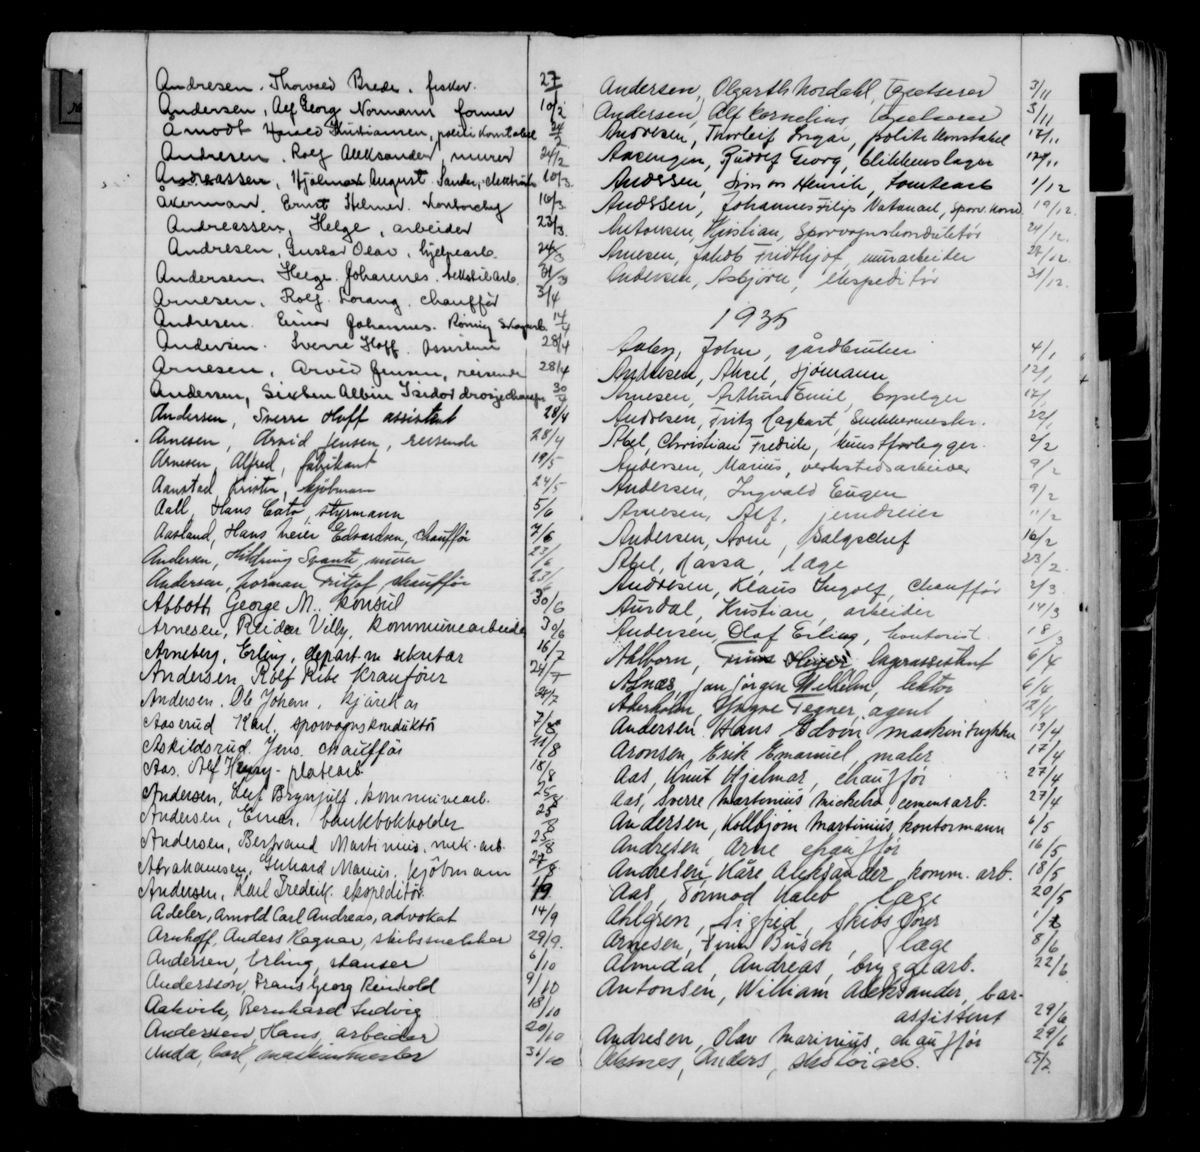 Andresen, Thorvald Brede, fisker. 27/
Andersen, Alf Georg Normann former 10/2
Amodt Harald Kristiansen, politi konstabel 24/2
Andresen, Rolf Aleksander, murer 24/2
Andreassen, Hjalmar August Sander, elektrik 10/3
Åkerman, Ernst Helmer. kontorchef 16/3
Andreassen, Helge, arbeider 23/3
Andresen, Gustav Olav, hjelpearb. 24/3
Andersen Helge Johannes. tekstilarb. 31/3
Arnesen, Rolf Lorang, chauffør 3/4
Andresen. Einar Johannes. 14/4
Andersen. Sverre Hoff. assistent 28/4
Arnesen, Arvid Jensen, reisende 28/4
Andersen, Sixten Albin Isidor drosjechauffør 30/
Andersen, Sverre Hoff assistent 28/4
Arnesen, Arvid Jensen, reisende 28/4
Arnesen, Alfred, fabrikant 19/5
Aanstad, Krister, kjöbmann 24/5
Aall, Hans Cato, styrmann 5/6
Aasland, Hans Meier Edvardsen, chauffør 7/6
Andersen, Hildring Svante, murer 23/6
Andersen, Norman Fritjof chauffør 23/
Abbott George M., konsul 30/6
Arnesen, Reidar Villy, kommunearbeider 30/6
Arneberg, Erling, depart.m sekretær 16/7
Andersen Rolf Ribe kranfører 24/7
Andersen. Ole Johan, kjørek. 24/7
Aaserud Karl, sporvognskonduktør 7/8
Askildsrud. Jens. chauffør 11/8
Aas. Alf Henry - platearb. 18/8
Andersen, Leif Brynjulf. kommunearb. 25/8
Andersen, Einar, bankbokholder 25/8
Andersen, Bertrand Martinius, mek. arb. 25/8
Abrahamsen, Gerhard Marius, kjöbmann 27/8
Andersen, Karl Fredrik. ekspeditør 1/9
Adeler, Arnold Carl Andreas, advokat 14/9
Arnhoff, Anders Ragnar, skibsmekler 29/9.
Andersen, Erling, stanser 6/10
Andersson, Frans Georg Reinhold 9/10
Aakvik, Bernhard Ludvig 18/10
Anderssen, Hans, arbeider 20/10
Anda, Carl, maskinmester 31/10
Andersen, Olgarth Nordahl, 3/11
Andersen, Alf Cornelius 3/11
Andresen, Thorleif Ingar, politikonstabel 12/11
Aasengen, Rudolf Georg, blikkenslager
Andersen, Simon Henrik, tomtearb 1/12
Andersen, Johannes Filip Natanael, Sporv. kond. 19/12.
Antonsen, Kristian, Sporvognskonduktør 24/12.
Arnesen, Jakob Fridthjof, murarbeider 24/12.
Andersen, Asbjørn, ekspeditør 31/12.
1935
Aaby, John, gårdbruker 4/1
Andresen, Aksel, sjømann 12/1
Arnesen, Arthur Emil, bypelger 12/1
Andresen, Fritz Hagbart, Snekkermester. 22/1
Abel, Christian Fredrik, kunstforlegger. 2/2
Andersen, Marius, verkstedsarbeider 9/2
Andersen, Ingvald Eugen 9/2
Arnesen, Alf, jerndreier 11/2
Andersen, Arne, Salgschef 16/2
Abel, Kassa, læge 23/2.
Andresen, Klaus Ingolf, chauffør 2/3.
Aursdal, Kristian, arbeider 14/3
Andersen, Olaf Erling, kontorist. 18/3
Ahlborn, lagerassistent 6/4
Afnæs, Jan Jørgen Wilhelm, lektor 6/4
Akerholm, Yngve Tegner, agent 12/4
Andersen, Hans Edvin maskintrykker 13/4
Aronsen Erik Emanuel maler 17/4
Aas, Knut Hjalmar, chauffør 27/4
Aas, Sverre Martinius Mickelse cementarb. 27/4
Andersen, Kolbjørn Martinius kontormann 6/5
Andresen Arne chauffør 16/5
Andresen, Kåre Aleksander komm. arb. 18/5
Aas, Tormod Kaleb læge 20/5
Ahlgren, Sigfrid, skibsfører 1/
Arnesen, Finn Busch, læge 8/6
Almdal, Andreas, bryggearb. 22/6
Antonsen, William Aleksander, bar-
assistent 29/6
Andresen, Olav Marinius, chauffør 29/6
Anders,